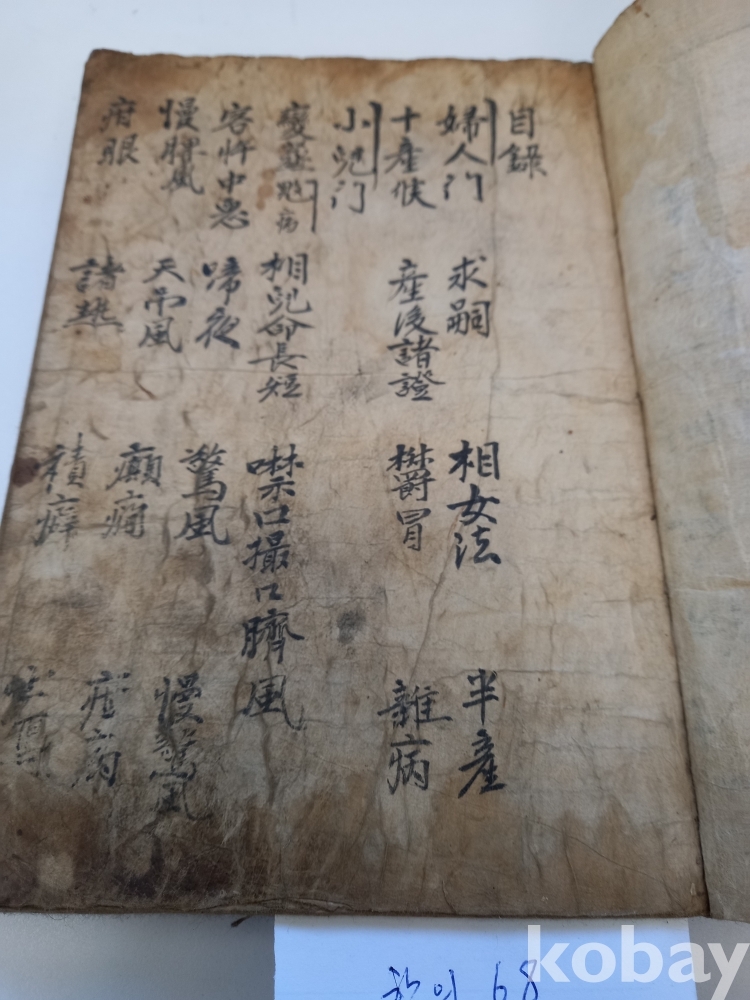 目錄
婦人门 求嗣 相女法 半産
十産候 産後諸證 欝冒 雜病
小兒门
變蒸 病 相兒命長短 噤口撮口臍風
客忤中惡 啼夜 驚風 慢驚風
慢脾風 天吊風 癲癎
疳眼 諸熱 積癖
한의 68
kobay